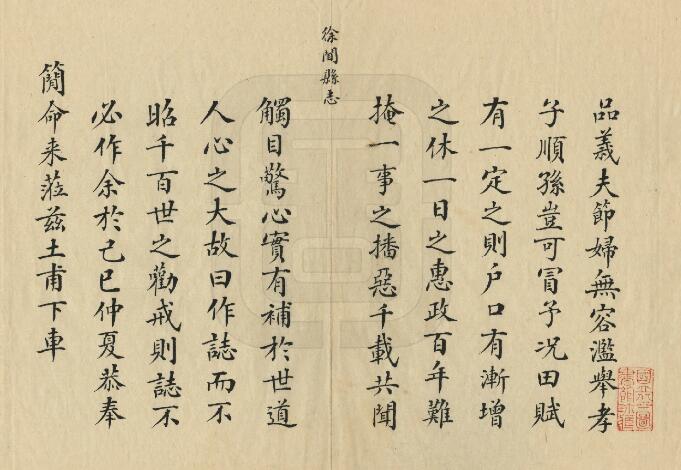 品義夫節婦無容濫舉孝
子順孫豈可冒予况田賦
有一定之則户口有漸增
之休一日之惠政百年難
掩一事之播惡千載共聞
徐聞縣志
觸目驚心實有補於世道
人心之大故曰作誌而不
昭千百世之勸戒則誌不
必作余於己巳仲夏恭奉
簡命来蒞茲土甫下車